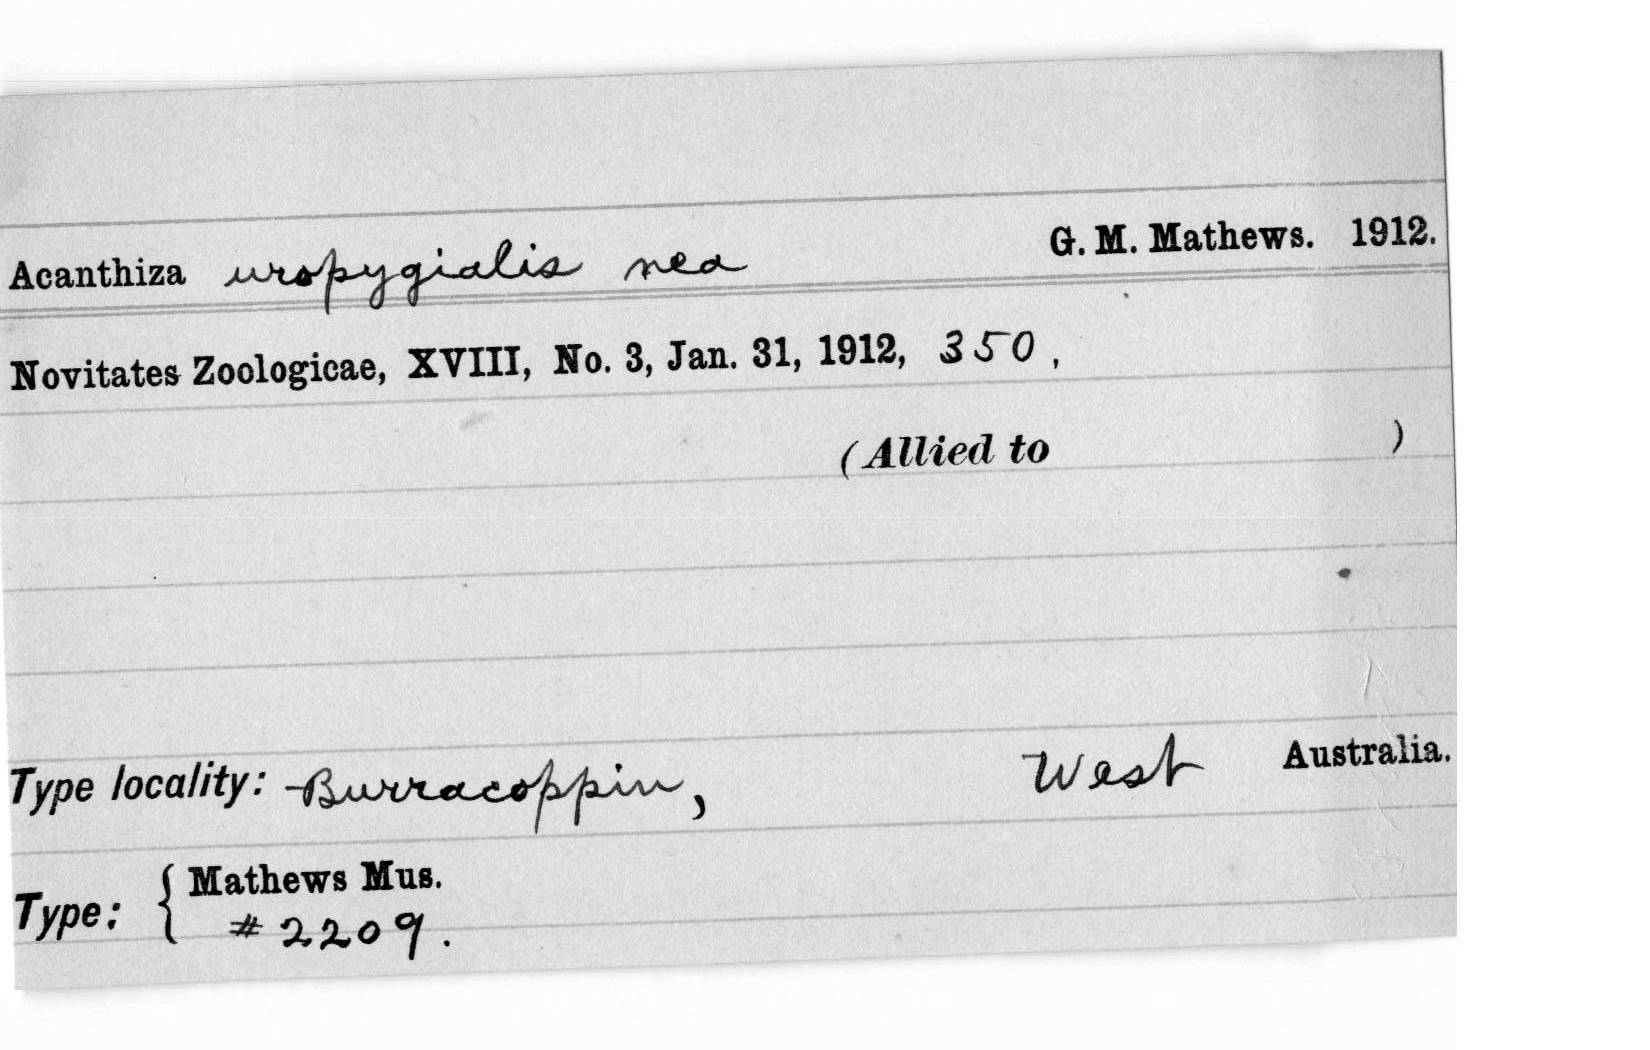 Acanthiza uropygialis nea G. M. Mathews. 1912.
Novitates Zoologicae, XVIII, No. 3, Jan. 31, 1912, 350,
(Allied to )
Type locality: Burracoppin, West Australia.
Type: { Mathews Mus.
# 2209.